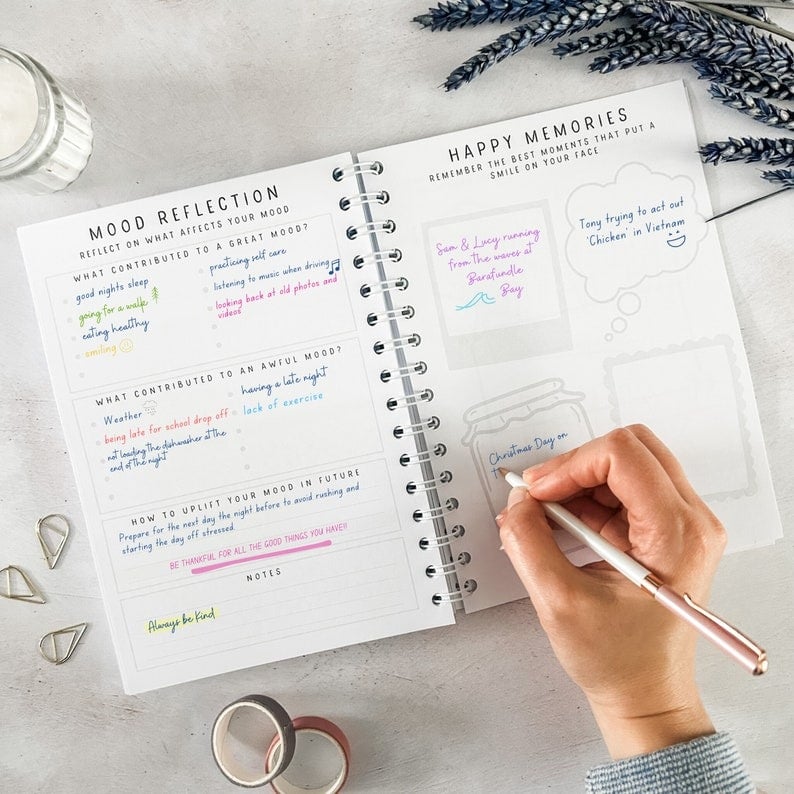 MOOD REFLECTION
REFLECT ON WHAT AFFECTS YOUR MOOD
WHAT CONTRIBUTED TO A GREAT MOOD?
good nights sleep
going for a walk
eating healthy
smiling
practicing self care
listening to music when driving
looking back at old photos and
videos
WHAT CONTRIBUTED TO AN AWFUL MOOD?
Weather
being late for school drop off
not loading the dishwasher at the
end of the night
having a late night
lack of exercise
HOW TO UPLIFT YOUR MOOD IN FUTURE
Prepare for the next day the night before to avoid rushing and
starting the day off stressed.
BE THANKFUL FOR ALL THE GOOD THINGS YOU HAVE!!
NOTES
Always be Kind
HAPPY MEMORIES
REMEMBER THE BEST MOMENTS THAT PUT A
SMILE ON YOUR FACE
Sam & Lucy running
from the waves at
Barafundle
Bay
Tony trying to act out
'Chicken' in Vietnam
Christmas Day on